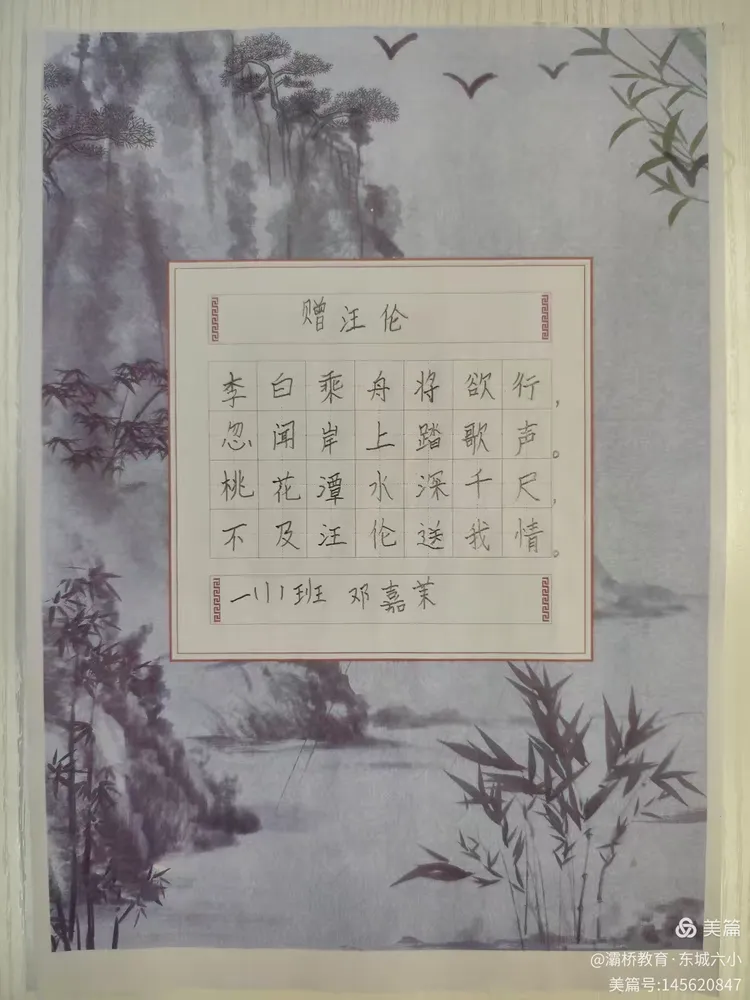 赠汪伦
李白乘舟将欲行，
忽闻岸上踏歌声。
桃花潭水深千尺，
不及汪伦送我情。
一(1)班 邓嘉茉
美篇
@灞桥教育·东城六小
美篇号:145620847